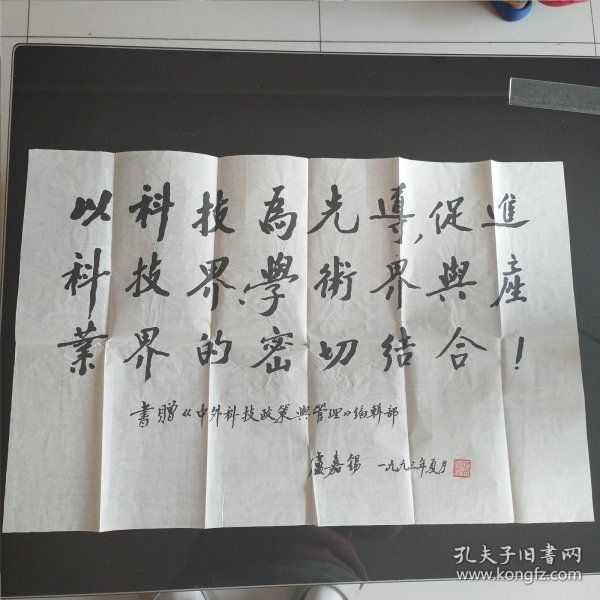 以科技為先導,促進
科技界、學術界與產
業界的密切結合!
書贈《中外科技政策與管理》編輯部
盧嘉錫 一九九三年夏月
孔夫子旧书网
www.kongfz.com